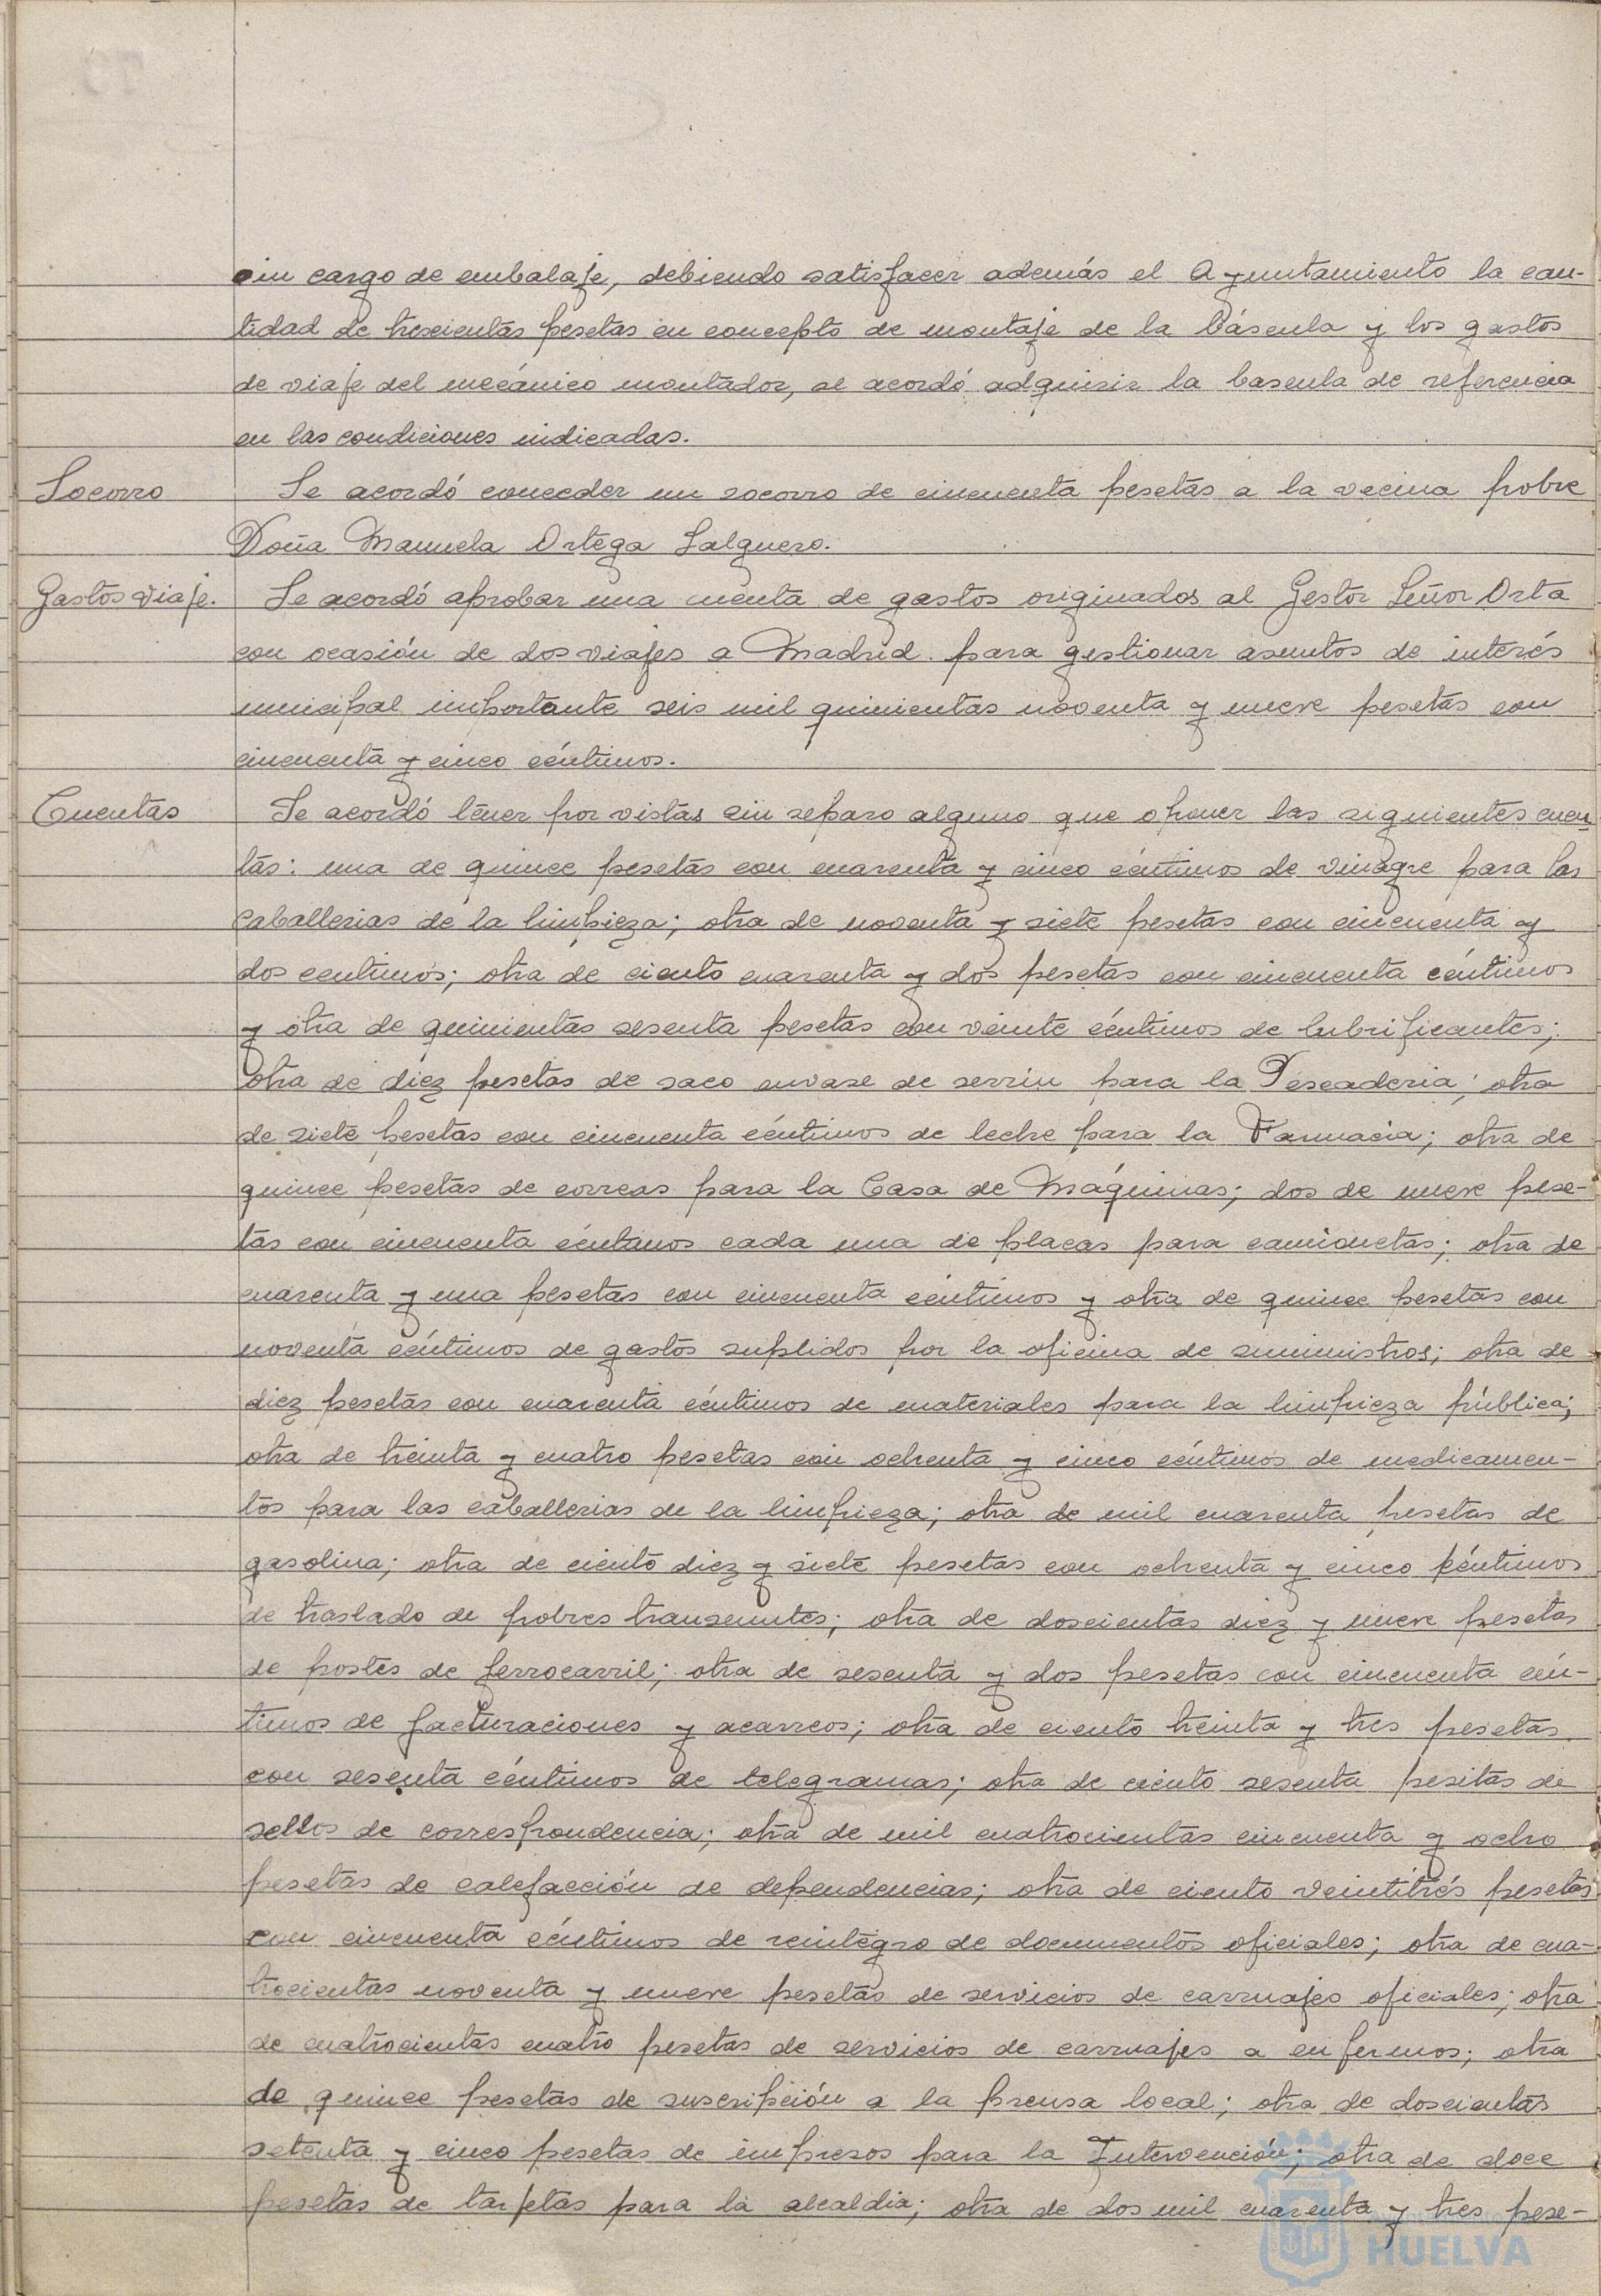 sin cargo de embalaje, debiendo satisfacer además el Ayuntamiento la can-
tidad de trescientas pesetas en concepto de montaje de la báscula y los gastos
de viaje del mecánico montador, se acordó adquirir la bascula de referencia
en las condiciones indicadas.
Socorro Se acordó conceder un socorro de cincuenta pesetas a la vecina pobre
Doña Manuela Ortega Salguero.
Gastos viaje. Se acordó aprobar una cuenta de gastos originados al Gestor Señor Orta
con ocasión de dos viajes a Madrid para gestionar asuntos de interés
municipal importante seis mil quinientas noventa y nueve pesetas con
cincuenta y cinco céntimos.
Cuentas Se acordó tener por vistas sin reparo alguno que oponer las siguientes cuen-
tas: una de quince pesetas con cuarenta y cinco céntimos de vinagre para las
caballerias de la limpieza; otra de noventa y siete pesetas con cincuenta y
dos centimos; otra de ciento cuarenta y dos pesetas con cincuenta céntimos
y otra de quinientas sesenta pesetas con veinte céntimos de lubrificantes;
otra de diez pesetas de saco envase de serrin para la Pescaderia; otra
de siete pesetas con cincuenta céntimos de leche para la Farmacia; otra de
quince pesetas de correas para la Casa de Máquinas; dos de nueve pese-
tas con cincuenta céntimos cada una de placas para camionetas; otra de
cuarenta y una pesetas con cincuenta céntimos y otra de quince pesetas con
noventa céntimos de gastos suplidos por la oficina de suministros; otra de
diez pesetas con cuarenta céntimos de materiales para la limpieza pública;
otra de treinta y cuatro pesetas con ochenta y cinco céntimos de medicamen-
tos para las caballerias de la limpieza; otra de mil cuarenta pesetas de
gasolina; otra de ciento diez y siete pesetas con ochenta y cinco céntimos
de traslado de pobres transeuntes; otra de doscientas diez y nueve pesetas
de postes de ferrocarril; otra de sesenta y dos pesetas con cincuenta cén-
timos de facturaciones y acarreos; otra de ciento treinta y tres pesetas
con sesenta céntimos de telegramas; otra de ciento sesenta pesetas de
sellos de correspondencia; otra de mil cuatrocientas cincuenta y ocho
pesetas de calefacción de dependencias; otra de ciento veintitrés pesetas
con cincuenta céntimos de reintegro de documentos oficiales; otra de cua-
trocientas noventa y nueve pesetas de servicios de carruajes oficiales; otra
de cuatrocientas cuatro pesetas de servicios de carruajes a enfermos; otra
de quince pesetas de suscripción a la prensa local; otra de doscientas
setenta y cinco pesetas de impresos para la Intervención; otra de doce
pesetas de tarjetas para la alcaldia; otra de dos mil cuarenta y tres pese-
HUELVA